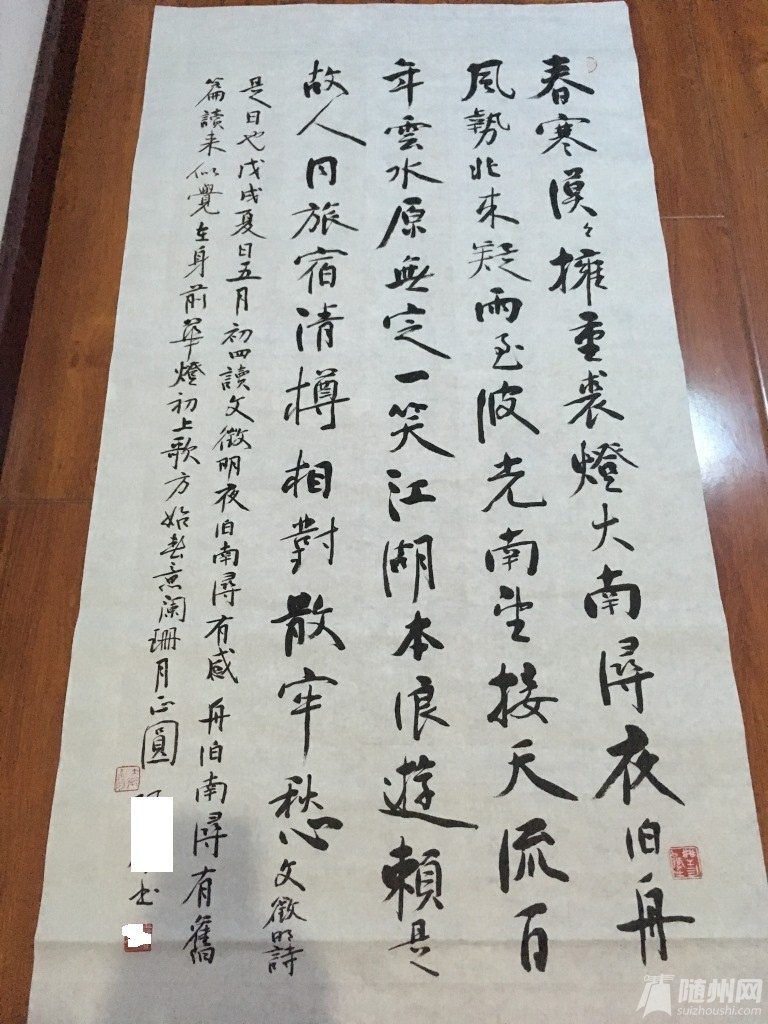 春寒漠〻擁重裘燈火南潯夜泊舟
風勢北來疑雨至波光南望接天流百
年雲水原無定一笑江湖本浪遊賴是
故人同旅宿清樽相對散牢愁文徵明詩
是日也戊戌夏日五月初四讀文徵明夜泊南潯有感舟泊南潯有舊
篇讀來似覺在身前華燈初上歌方始春意闌珊月正圓
书
随州网
suizhoushi.com